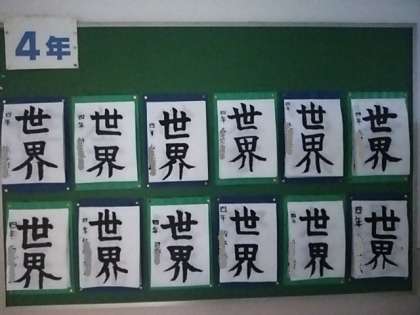 4年
世界
四年
世界
四年
世界
四年
世界
四年
世界
世界
四年
世界
四年
世界
四年
世界
四年
世界
四年
世界
四年
世界
四年